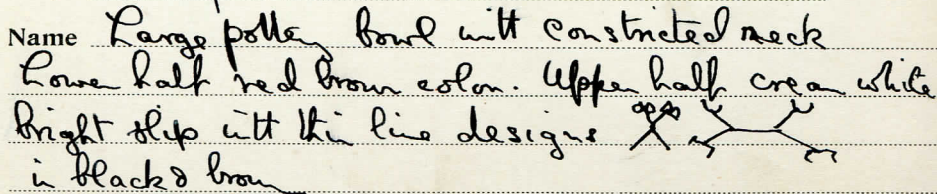 Name Large pottery bowl with constricted neck
Lower half red brown colour. Upper half cream white
bright slip with thin line designs
in black & brown